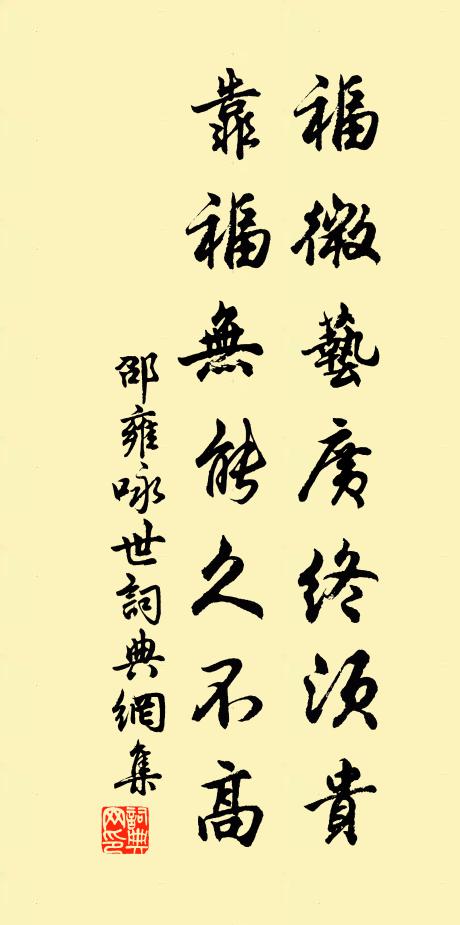 福微藝廣終須貴
靠福無能久不高
邵雍咏世詞典網集
詞典網印